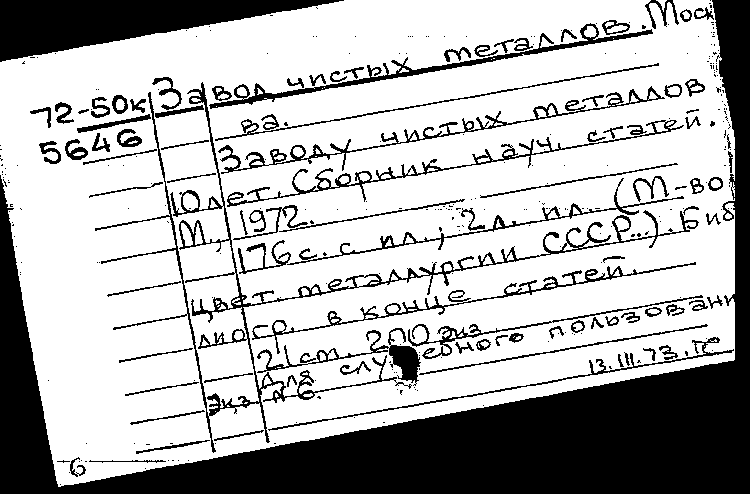 Завод чистых металлов. Моск
72-50к
ва.
5646
Заводу чистых металлов
10 лет. Сборник науч. статей.
М., 1972.
176 с. с ил.; 2 л. ил. (М-во
цвет. металлургии СССР...). Биб
лиогр. в конце статей.
21 см. 200 экз
Для служебного пользовани
Экз № 6.
13.III.73.
6